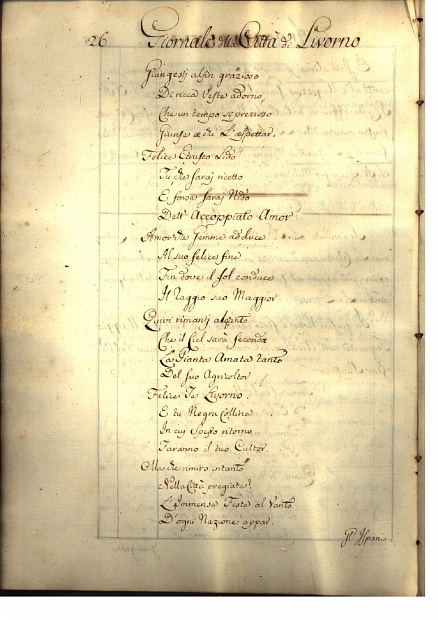 26 Giornale della Città di Livorno
Giungesti alfin grazioso
Di ricca Veste adorno,
Che un tempo si prezioso
Giunse a di L'aspettar.
Felice Etrusco Lido
Tu, che sarai ricetto
E forsa sarai Nido
Dell' Accoppiato Amor
Amor che Jemme adduce
Al suo felice fine
Fin dove il sol conduce
Il Raggio suo Maggior
Quivi rimanti alquanto
Che il Ciel sarà seconda
La Pianta Amata tanto
Del suo Agricoltor
Felice Te Livorno
E tu Negra Collina
In cui Spesso ritorno
Faranno il tuo Cultor.
Ma che rimiro intanto
Nella Città pregiata?
L'Immense Feste al Vanto
D'ogni Nazione appar.